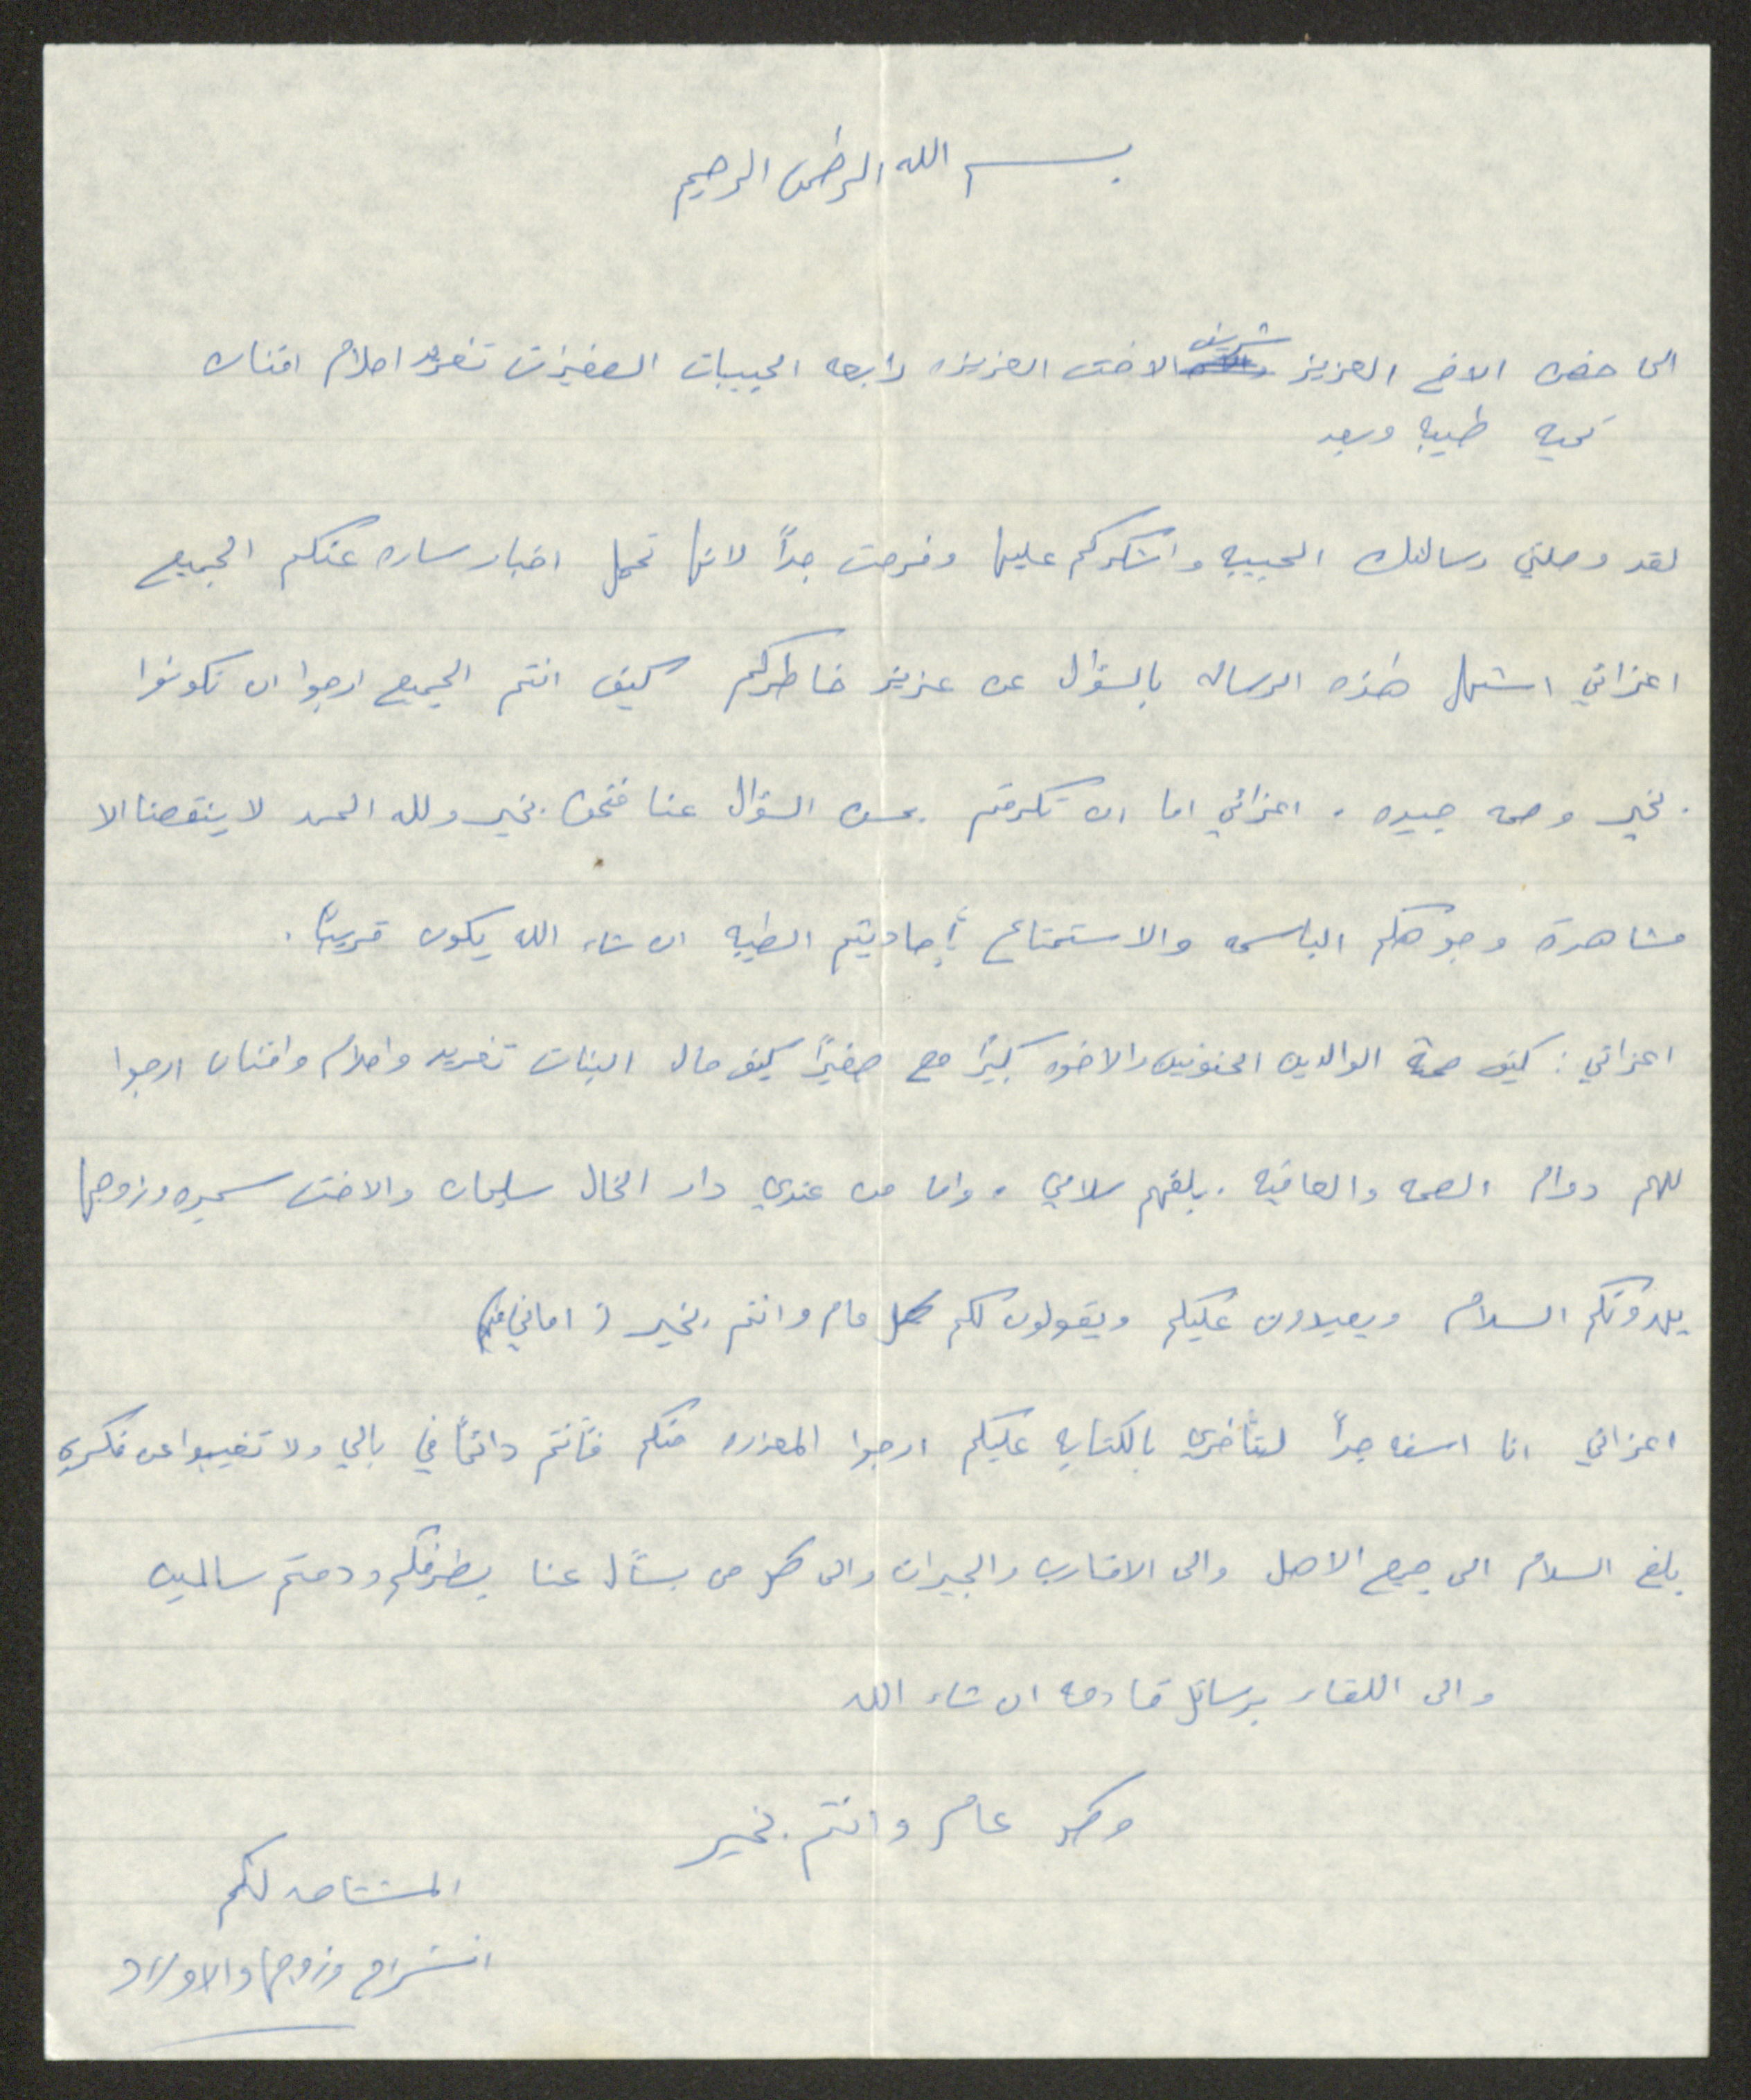 بسم الله الرحمن الرحيم
الى حضرة الاخ العزيز شريف الاخت العزيزه رابعه الحبيبات الصغيرات تغريد احلام افنان
تحيه طيبه وبعد
لقد وصلني رسالتك الحبيبه واشكركم عليها وفرحت جداً لانها تحمل اخبار ساره عنكم الجميع
اعزائي استهل هذه الرساله بالسؤال عن عزيز خاطركم كيف انتم الجميع ارجوا ان تكونوا
بخير وصحه جيده . اعزائي اما ان تكرمتم بحسن السؤال عنا فنحن بخير ولله الحمد لا ينقصنا الا
مشاهدة وجوهكم الباسمه والاستمتاع بأحاديثكم الطيبه ان شاء الله يكون قريباً .
اعزائي : كيف صحة الوالدين الحنونين والاخوه كبيراً مع صغيراً كيف حال البنات تغريد واحلام وافنان ارجوا
لهم دوام الصحه والعافيه . بلغهم سلامي . واما من عندي دار الخال سليمان والاخت سميره وزوجها
يهدونكم السلام ويعيدون عليكم ويقولون لكم كل عام وانتم بخير (
اعزائي انا اسفه جداً لتأخري بالكتابه عليكم ارجوا المعذره منكم فأنتم دائماً في بالي ولا تغيبوا عن فكري
بلغ السلام الى جميع الاهل والى الاقارب والجيران والى كل من يسأل عنا بطرفكم ودمتم سالمين
والى اللقاء برسائل قادمه ان شاء الله
وكل عام وانتم بخير
المشتاقه لكم
انشراح وزوجها والاولاد